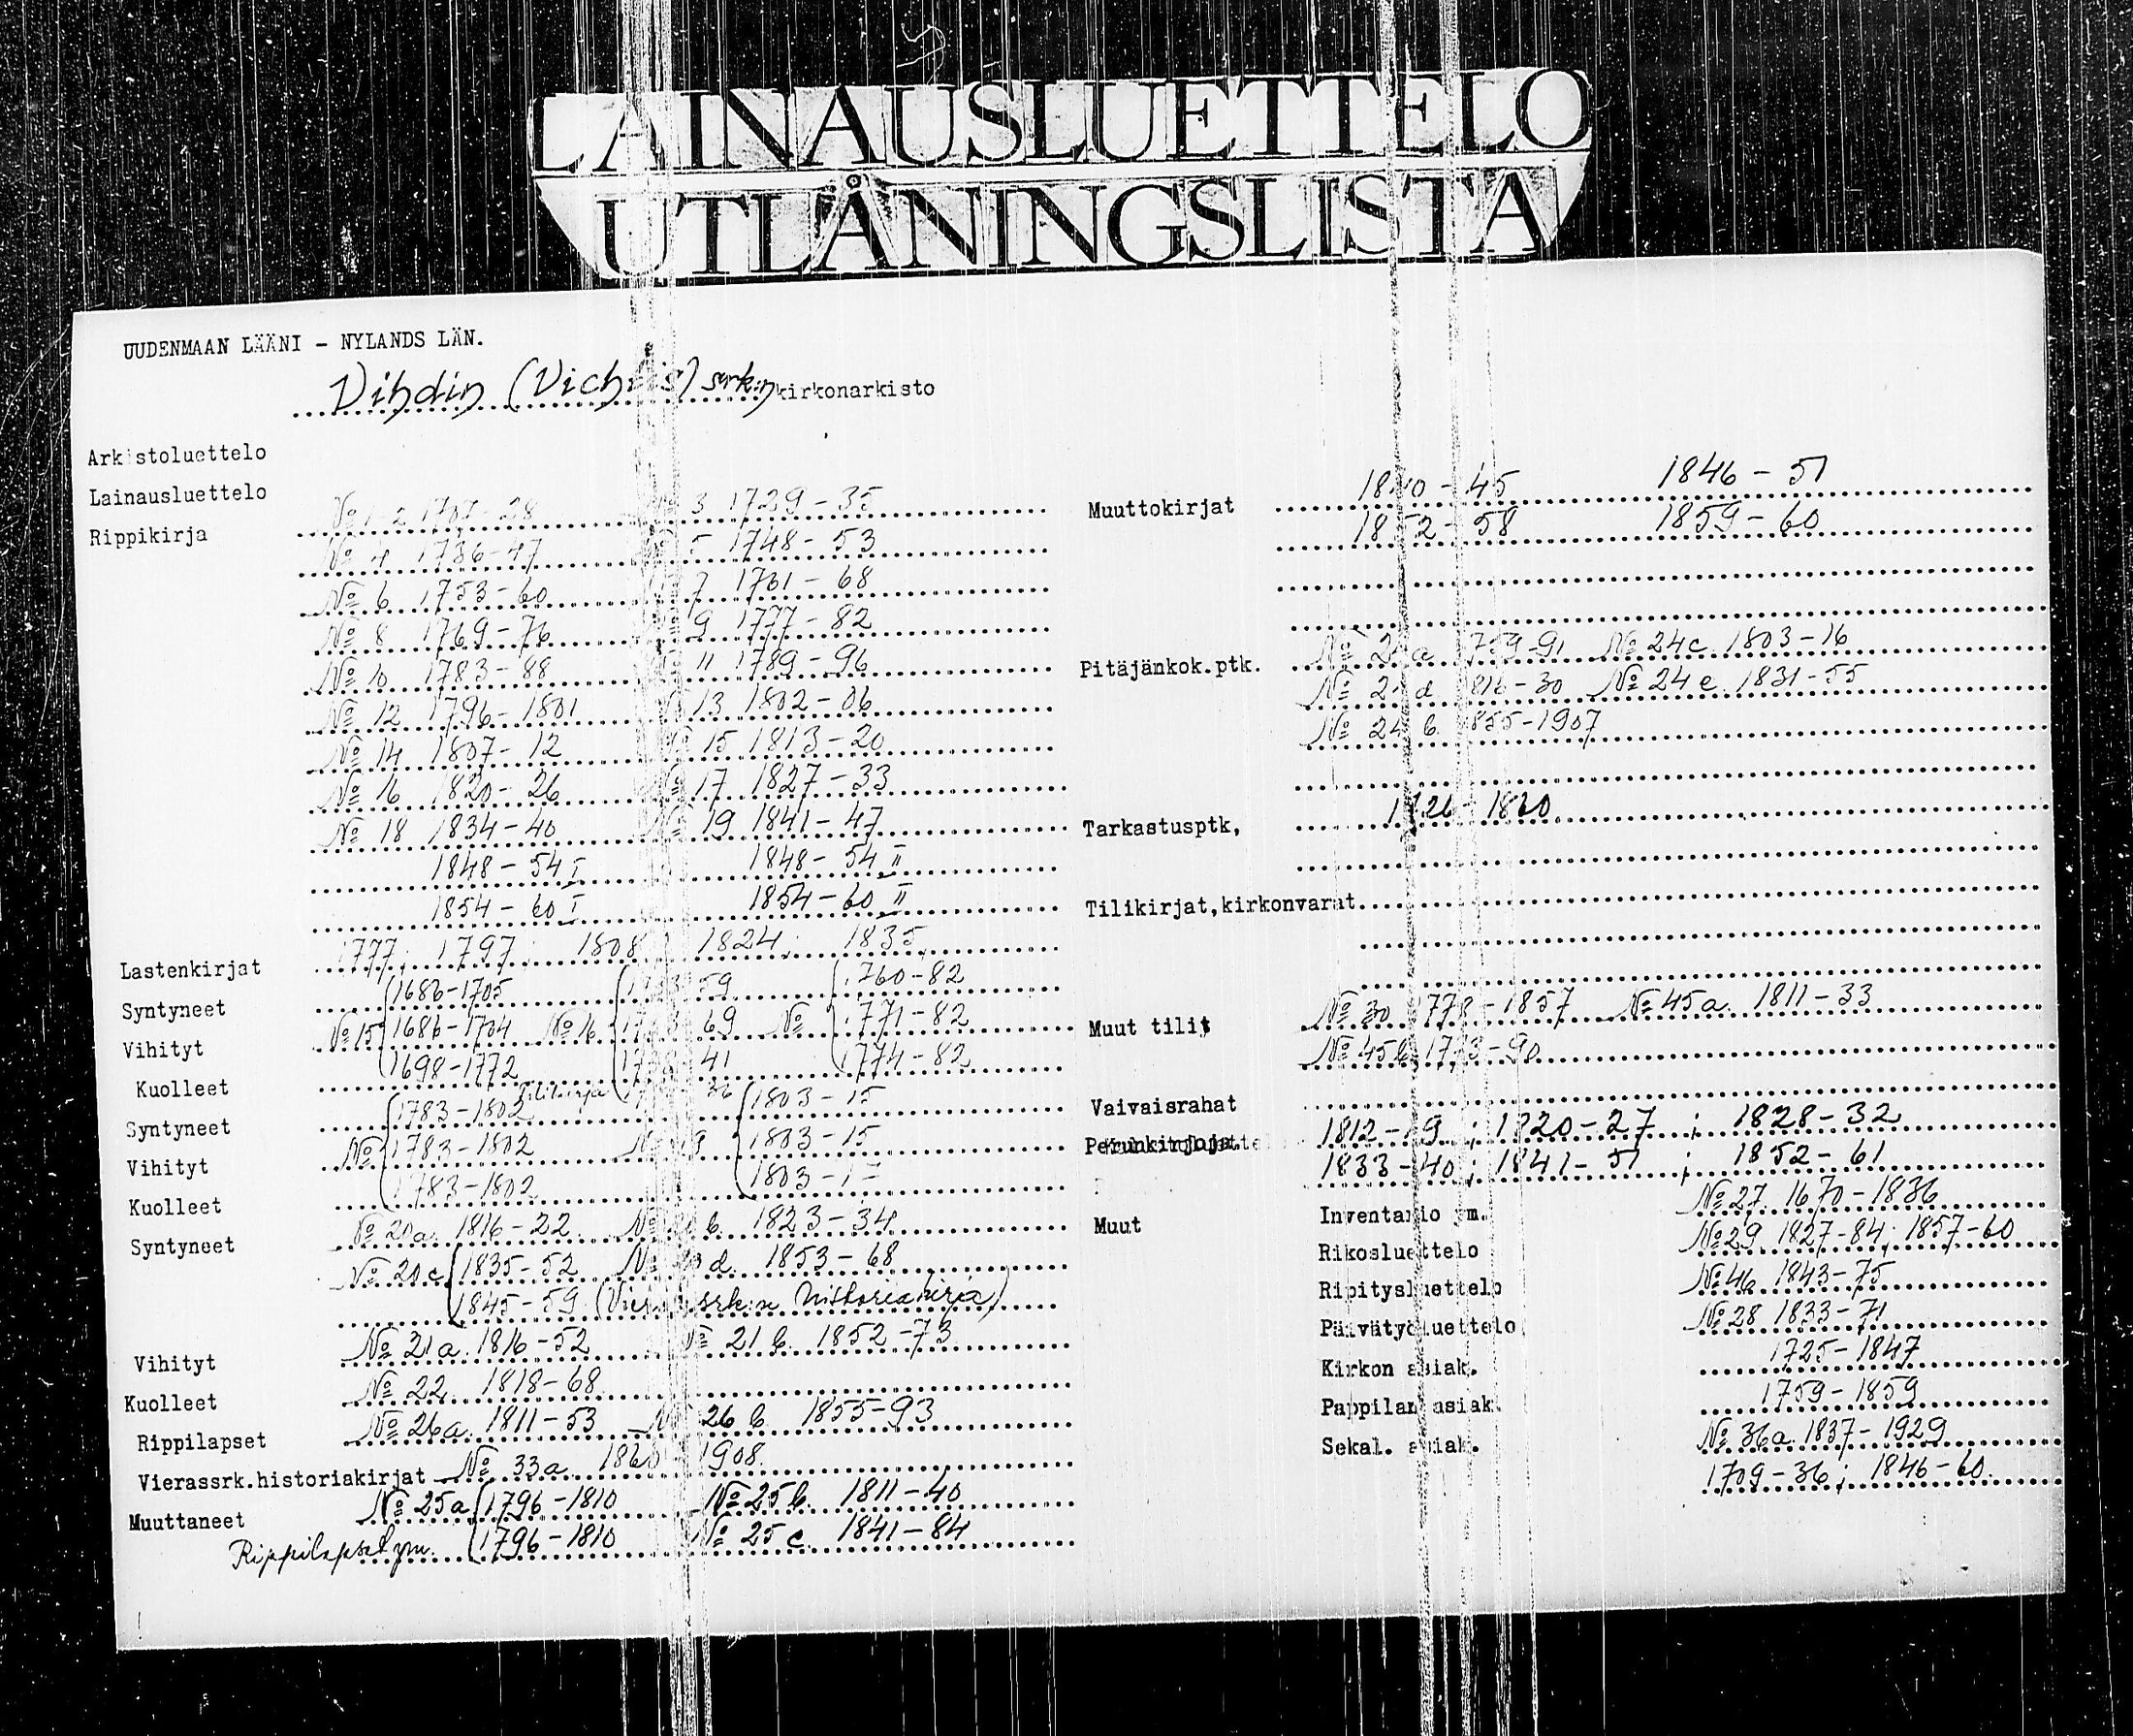 LAINAUSLUETTELO
UTLÅNINGSLISTA
UUDENMAAN LÄÄNI - NYLANDS LÄN.
Vihdin (Vichtis) srk:n kirkonarkisto
Arkistoluettelo
Lainausluettelo
Rippikirja No 1-2 1707-28 No 3 1729-35
No 4 1736-47 No 5 1748-53
No 6 1753-60 No 7 1761-68
No 8 1769-76 No 9 1777-82
No 10 1783-88 No 11 1789-96
No 12 1796-1801 No 13 1802-06
No 14 1807-12 No 15 1813-20
No 16 1820-26 No 17 1827-33
No 18 1834-40 No 19 1841-47
1848-54 I 1848-54 II
1854-60 I 1854-60 II
Lastenkirjat 1777; 1797; 1808; 1824; 1835
Syntyneet 1686-1705 59 1760-82
Vihityt No 15 1686-1704 No 16 69 No 1771-82
Kuolleet 1698-1772 41 1774-82
Tilikirja 36
Syntyneet 1783-1802 1803-15
Vihityt No 1783-1802 1803-15
Kuolleet 1783-1802 1803-
Syntyneet No 20a. 1816-22 No b. 1823-34
No 20c 1835-52 No d. 1853-68
1845-59 (Vierassrk:n historiakirja)
Vihityt No 21a. 1816-52 No 21 b. 1852-73
Kuolleet No 22 1818-68
Rippilapset No 26a. 1811-53 No 26 b. 1855-93
Vierassrk.historiakirjat No 33a. 1860-1908.
Muuttaneet No 25a 1796-1810 No 25 b. 1811-40
Rippilapset ym. 1796-1810 No 25 c. 1841-84
Muuttokirjat 1840-45 1846-51
1852-58 1859-60
Pitäjänkok.ptk. No 24a 1759-91 No 24c. 1803-16
No 24 d. 1816-30 No 24 e. 1831-55
No 24 b. 1855-1907
Tarkastusptk,
Tilikirjat,kirkonvarat
Muut tilit No 30 1778-1857 No 45a. 1811-33
No 45b. -90
Vaivaisrahat
Perunkirjoja. 1812-19; 1820-27; 1828-32
1833-40; 1841-51; 1852-61
Muut Inventario ym. No 27 1670-1836
Rikosluettelo No 29 1827-84; 1857-60
Ripitysluettelo No 46 1843-75
Päivätyöluettelo No 28 1833-71
Kirkon asiak. 1725-1847
Pappilan asiak. 1759-1859
Sekal. asiak. No 36a. 1837-1929
1709-36; 1846-60.